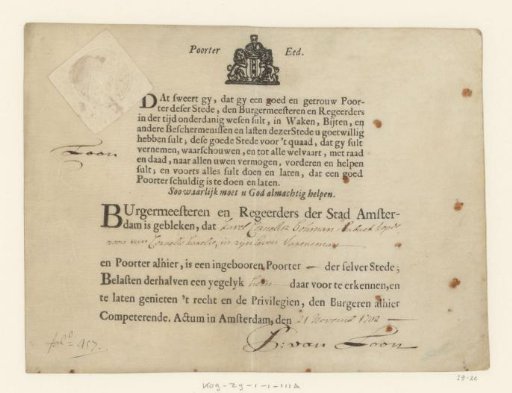 Poorter Eed.
DAt sweert gy, dat gy een goed en getrouw Poor-
ter deser Stede, den Burgermeesteren en Regeerders
in der tijd onderdanig wesen sult, in Waken, Bijten, en
andere Beschermenissen en lasten dezer Stede u goetwillig
hebben sult, dese goede Stede voor 't quaad, dat gy sult
vernemen, waarschouwen, en tot alle welvaart, met raad
en daad, naar allen uwen vermogen, vorderen en helpen
sult, en voorts alles sult doen en laten, dat een goed
Poorter schuldig is te doen en laten.
Soo waarlijk moet u God almachtig helpen.
Loon
BUrgermeesteren en Regeerders der Stad Amster-
dam is gebleken, dat
en Poorter alhier, is een ingebooren Poorter der selver Stede;
Belasten derhalven een yegelyk hem daar voor te erkennen, en
te laten genieten 't recht en de Privilegien, den Burgeren alhier
Competerende. Actum in Amsterdam, den 21
fol. 457.
P: van Loon
KOG-ZG-1-1-111A